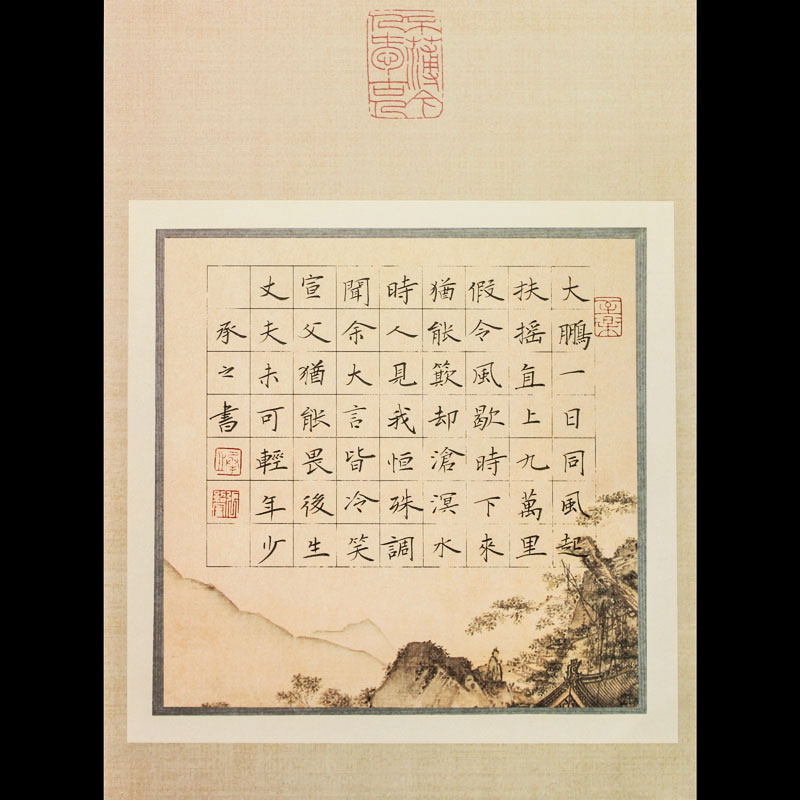 大鵬一日同風起
扶摇直上九萬里
假令風歇時下來
猶能簸却滄溟水
時人見我恒殊調
聞余大言皆冷笑
宣父猶能畏後生
丈夫未可輕年少
承之書